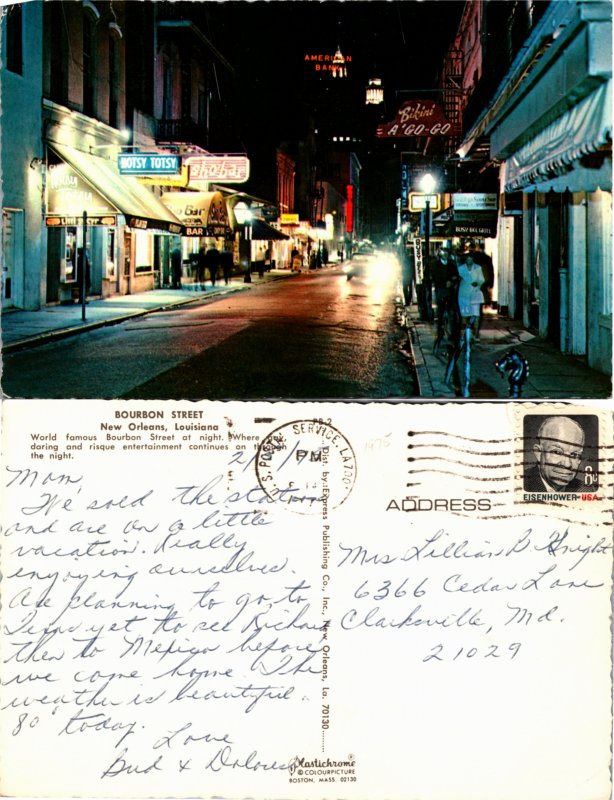 AMERICAN
BANK
Bikini
A GO-GO
HOTSY TOTSY
sho bar
Bar
BAR
BOURBON STREET
New Orleans, Louisiana
World famous Bourbon Street at night. Where
daring and risque entertainment continues on through
the night.
Mom,
We've sold the station
and are on a little
vacation. Really
enjoying ourselves.
Are planning to go to
Texas yet to see Richard
then to Mexico before
we come home. The
weather is beautiful.
80° today.
Love
Bud & Dolores
Dist. by: Express Publishing Co., Inc., New Orleans, La. 70130
Plastichrome®
© COLOURPICTURE
BOSTON, MASS. 02130
U.S. POSTAL SERVICE, LA
PM
1975
6c
EISENHOWER·USA
ADDRESS
Mrs Lillian B. Knight
6366 Cedar Lane
Clarksville, Md.
21029